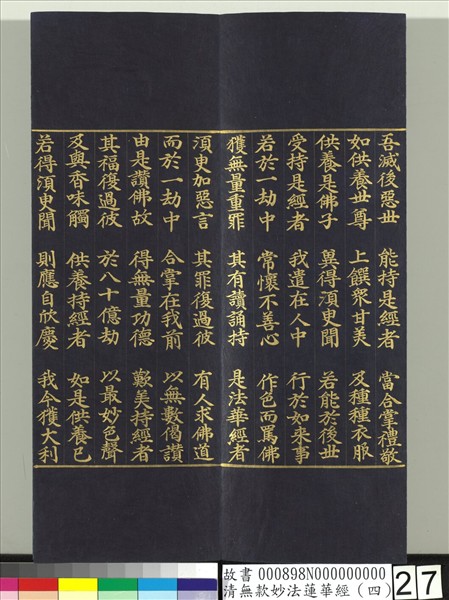 吾滅後惡世　能持是經者　當合掌禮敬
如供養世尊　上饌眾甘美　及種種衣服
供養是佛子　冀得須臾聞　若能於後世
受持是經者　我遣在人中　行於如來事
若於一劫中　常懷不善心　作色而罵佛
獲無量重罪　其有讀誦持　是法華經者
須臾加惡言　其罪復過彼　有人求佛道
而於一劫中　合掌在我前　以無數偈讚
由是讚佛故　得無量功德　歎美持經者
其福復過彼　於八十億劫　以最妙色聲
及與香味觸　供養持經者　如是供養已
若得須臾聞　則應自欣慶　我今獲大利
故書 000898N000000000
清無款妙法蓮華經（四）
27